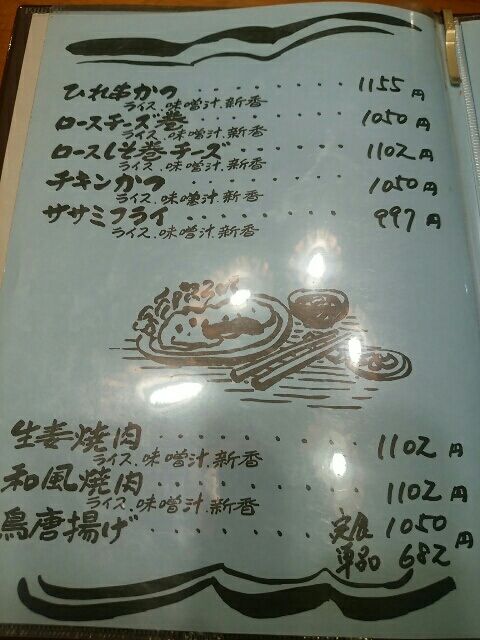 ひれ串かつ・・・・・・・・・1155円
ライス.味噌汁.新香
ロースチーズ巻・・・・・・・・1050円
ライス.味噌汁.新香
ロースしそ巻チーズ・・・・・・1102円
ライス.味噌汁.新香
チキンかつ・・・・・・・・・1050円
ライス.味噌汁.新香
ササミフライ・・・・・・・・997円
ライス.味噌汁.新香
生姜焼肉・・・・・・・・・・1102円
ライス.味噌汁.新香
和風焼肉・・・・・・・・・・1102円
ライス.味噌汁.新香
鳥唐揚げ・・・・・・・定食1050円
単品682